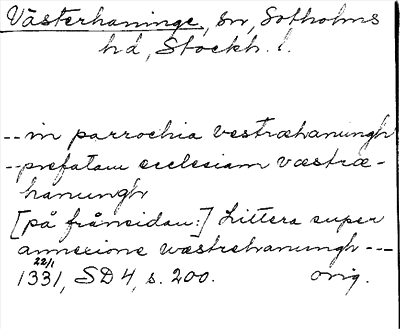 Västerhaninge, sn, Sotholms
hd, Stockh. l.
-- in parrochia vestræhanungh
-- prefatam ecclesiam væstræ-
hanungh
[på frånsidan:] Littera super
annexione wæstrehanungh ---
22/1
1331, SD 4, s. 200. orig.